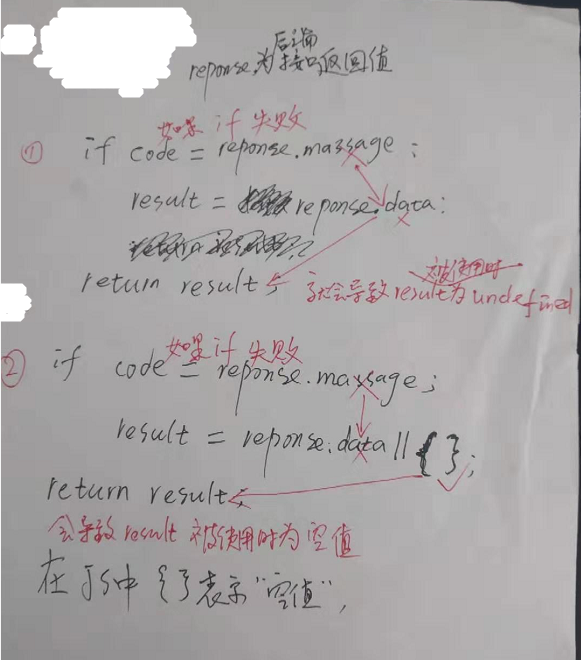 后端
reponse.为接口返回值
如果 if 失败
① if code = reponse.massage ;
result = reponse.data;
return result; 就会导致result为undefined
被使用时
如果 if 失败
② if code = reponse.massage ;
result = reponse.data || { };
return result;
会导致 result 被使用时为空值
在 JS中 {} 表示“空值”,